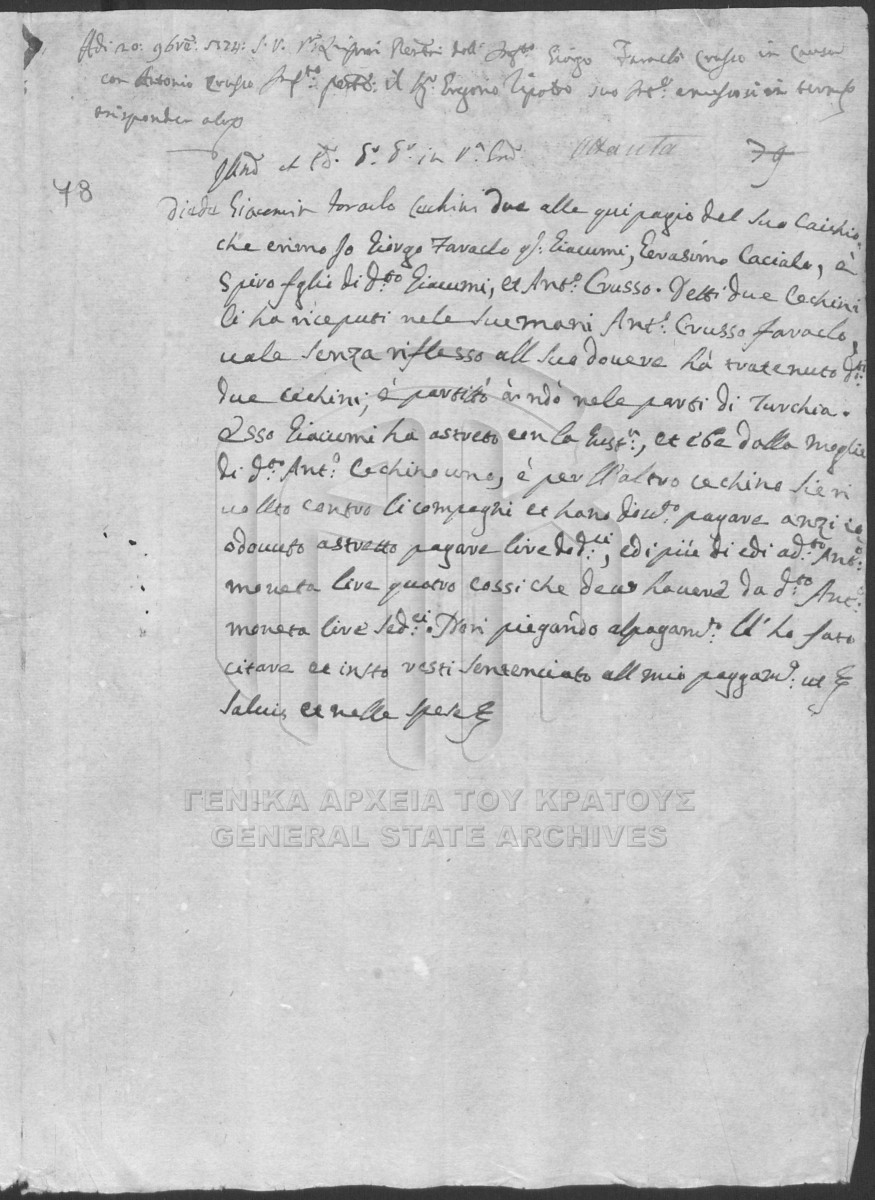 Adi 20: 9bre 1774: S. V. dell' Giorgo Faraclò Crusso in Causa
con Antonio Crusso il Sr Ergorio Lipotro suo in term
rispondere
et in
79
78
diede Giacomin Faraclo Cechini due alle quipagio del suo Caichio,
che erimo Io Giorgo Faraclo qm. Giacumi, Gerasimo Caciale, è
Spiro fglii di dto Giacumi, et Anto Crusso. Detti due Cechini
li ha riceputi nele sue mani Anto Crusso faraclo,
uale senza riflesso all suo douere hà tratenuto dti
due cechini, è partitó àndò nele parti di Turchia.
Esso Giacumi ha astreto con la Giustia, et ebe dalla moglie
di dto Anto Cechino uno, è per ll'altro cechino sie ri
uollto contro li compagni et hano douto pagare anzi io
ò douuto astretto pagare lire dodci, ed i piú di edi a dto Anto
moneta lire quatro cossi che deuo hauere da dto Anto
moneta lire sedci. Non piegando al pagamto ll' ho fato
citare et insto resti sentenciato all mio paggamo: ut
Saluis et nelle spese
ΓΕΝΙΚΑ ΑΡΧΕΙΑ ΤΟΥ ΚΡΑΤΟΥΣ
GENERAL STATE ARCHIVES